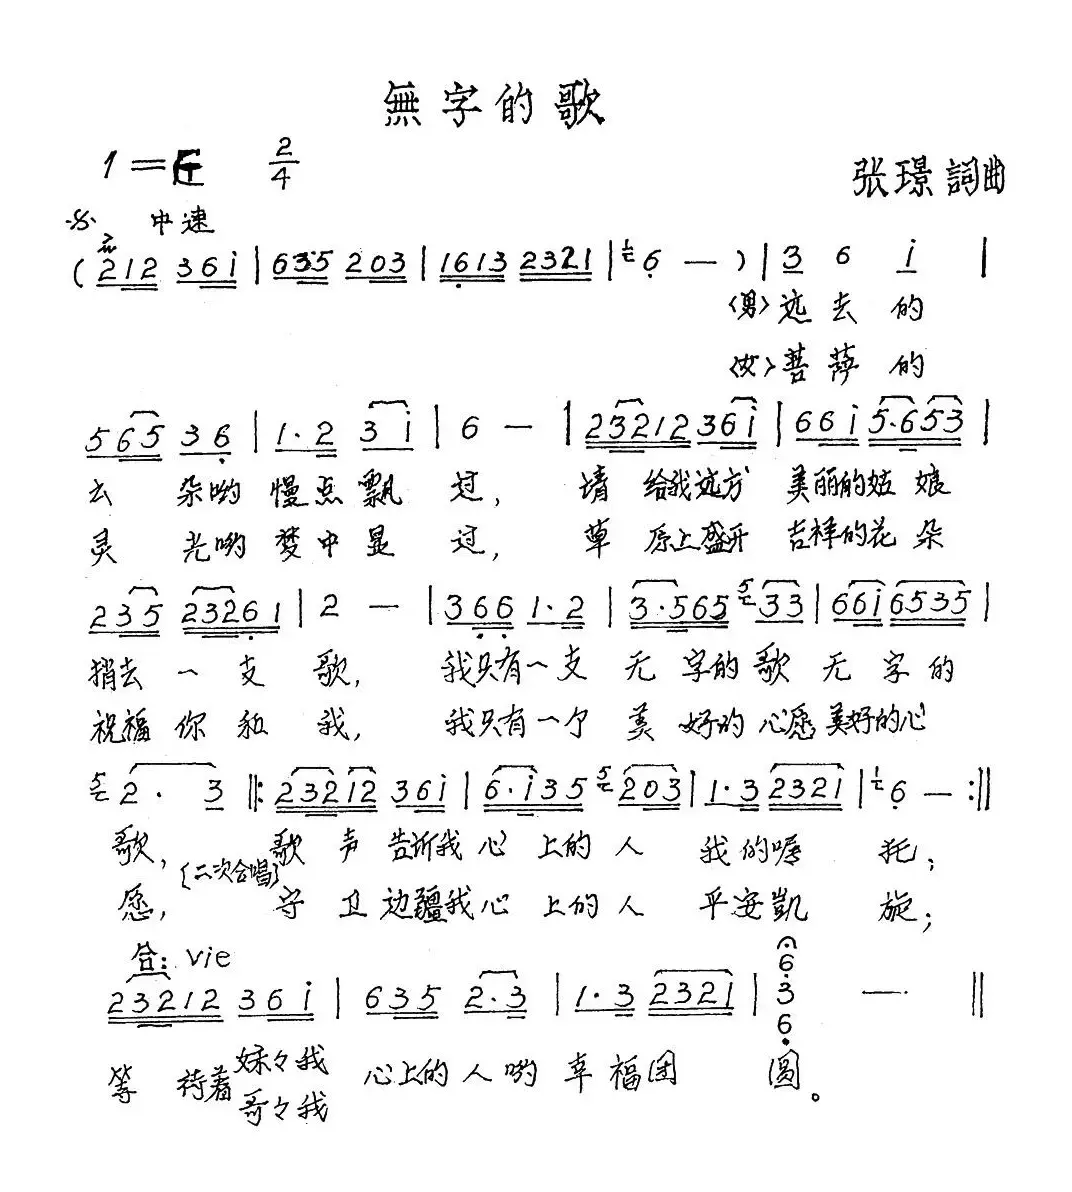 無字的歌
1=F 2/4
张璟詞曲
中速
(212 36i | 6335 203 | 1613 2321 | 6 — ) | 3 6 i |
〈男〉远去的
〈女〉菩萨的
565 36 | 1·2 3i | 6 — | 23212 36i | 66i 5·653 |
云朵哟慢点飘过，请给我远方美丽的姑娘
灵光哟梦中显过，草原上盛开吉祥的花朵
235 23261 | 2 — | 366 1·2 | 3·565 5 33 | 66i 6535 |
捎去一支歌，我只有一支无字的歌无字的
祝福你和我，我只有一个美好的心愿美好的心
5 2· 3 ‖: 23212 36i | 6·i35 5 203 | 1·3 2321 | 1 6 — :‖
歌，歌声告诉我心上的人我的嘱托；
〔二次合唱〕
愿，守卫边疆我心上的人平安凱旋；
合：vie
23212 36i | 635 2·3 | 1·3 2321 | 6 3 6 — ‖
等待着妹々我心上的人哟幸福团圆。
哥々我